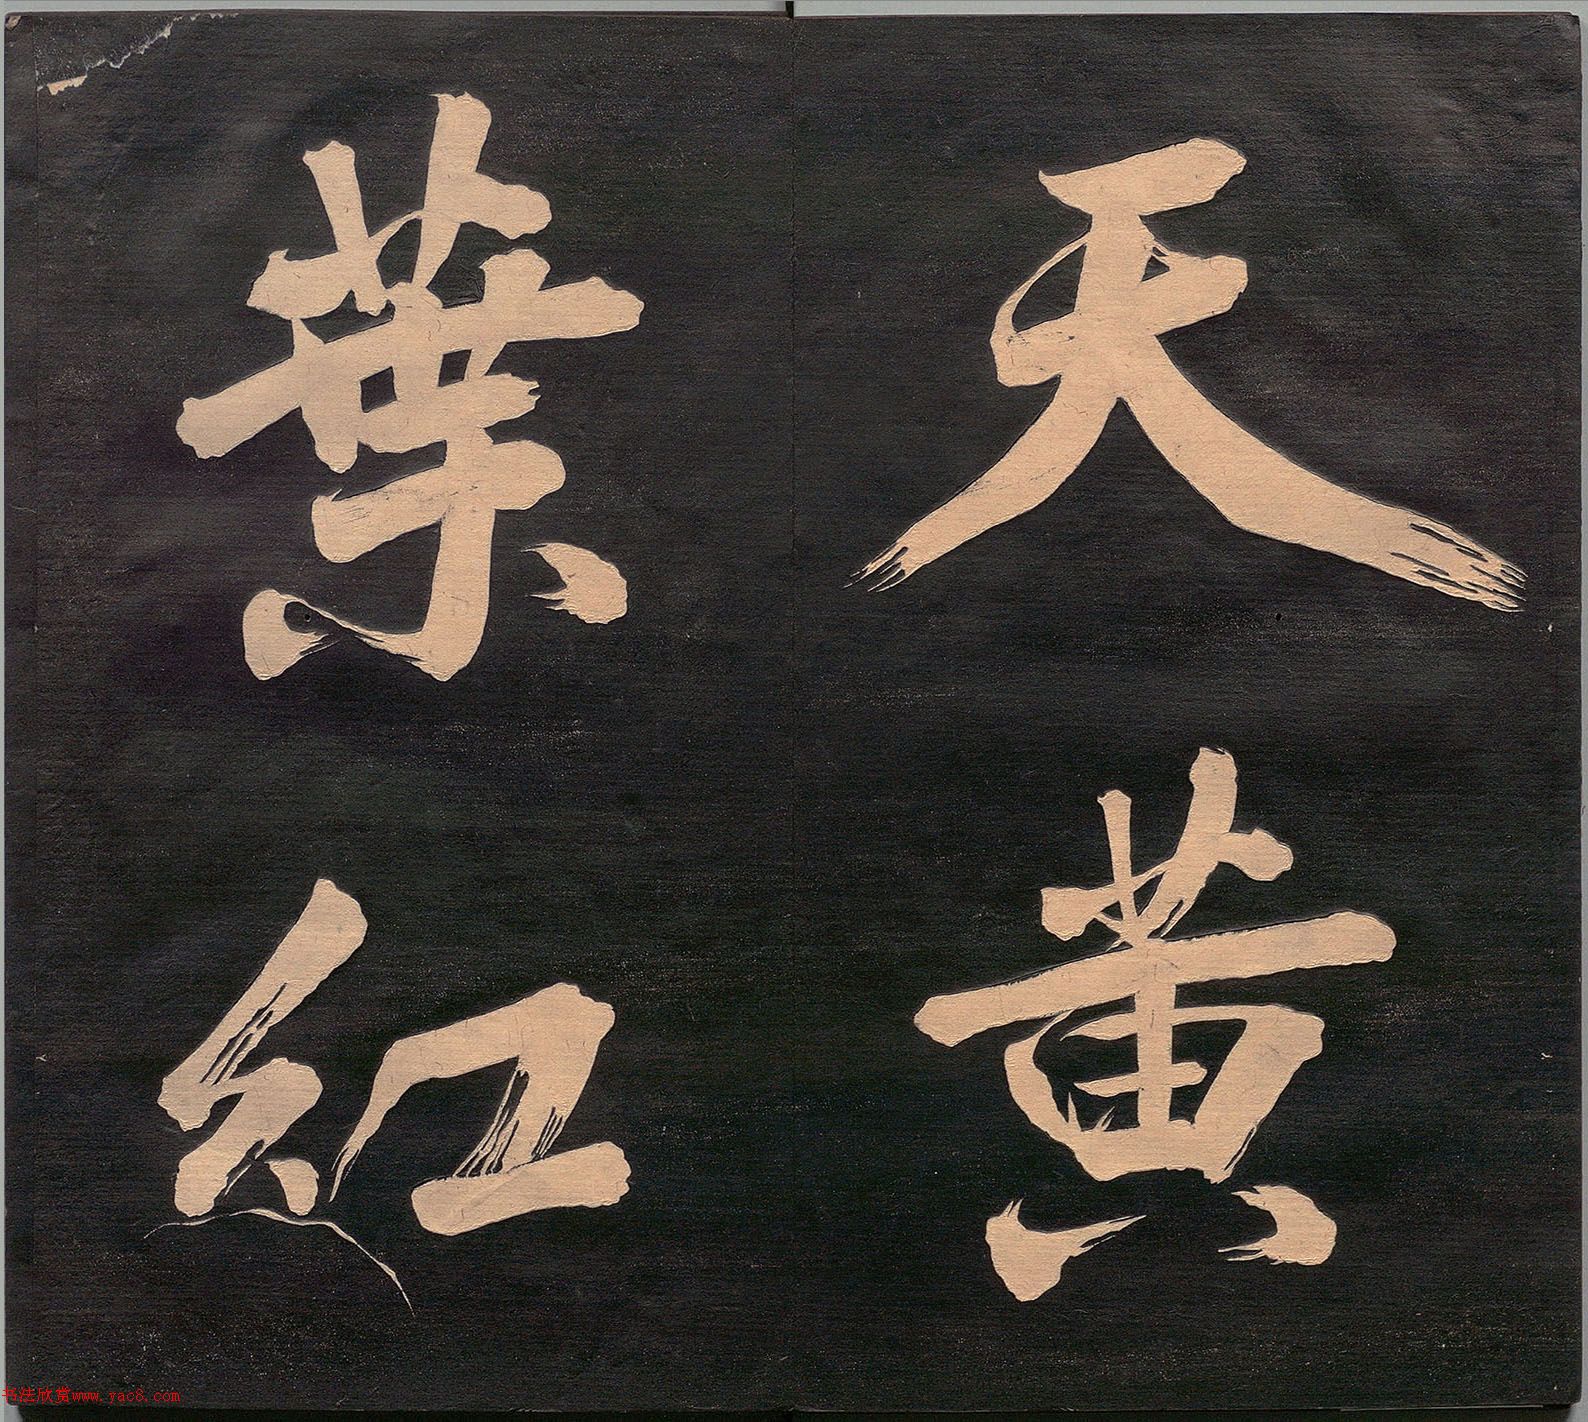 天黄
葉紅
书法欣赏www.yac8.com